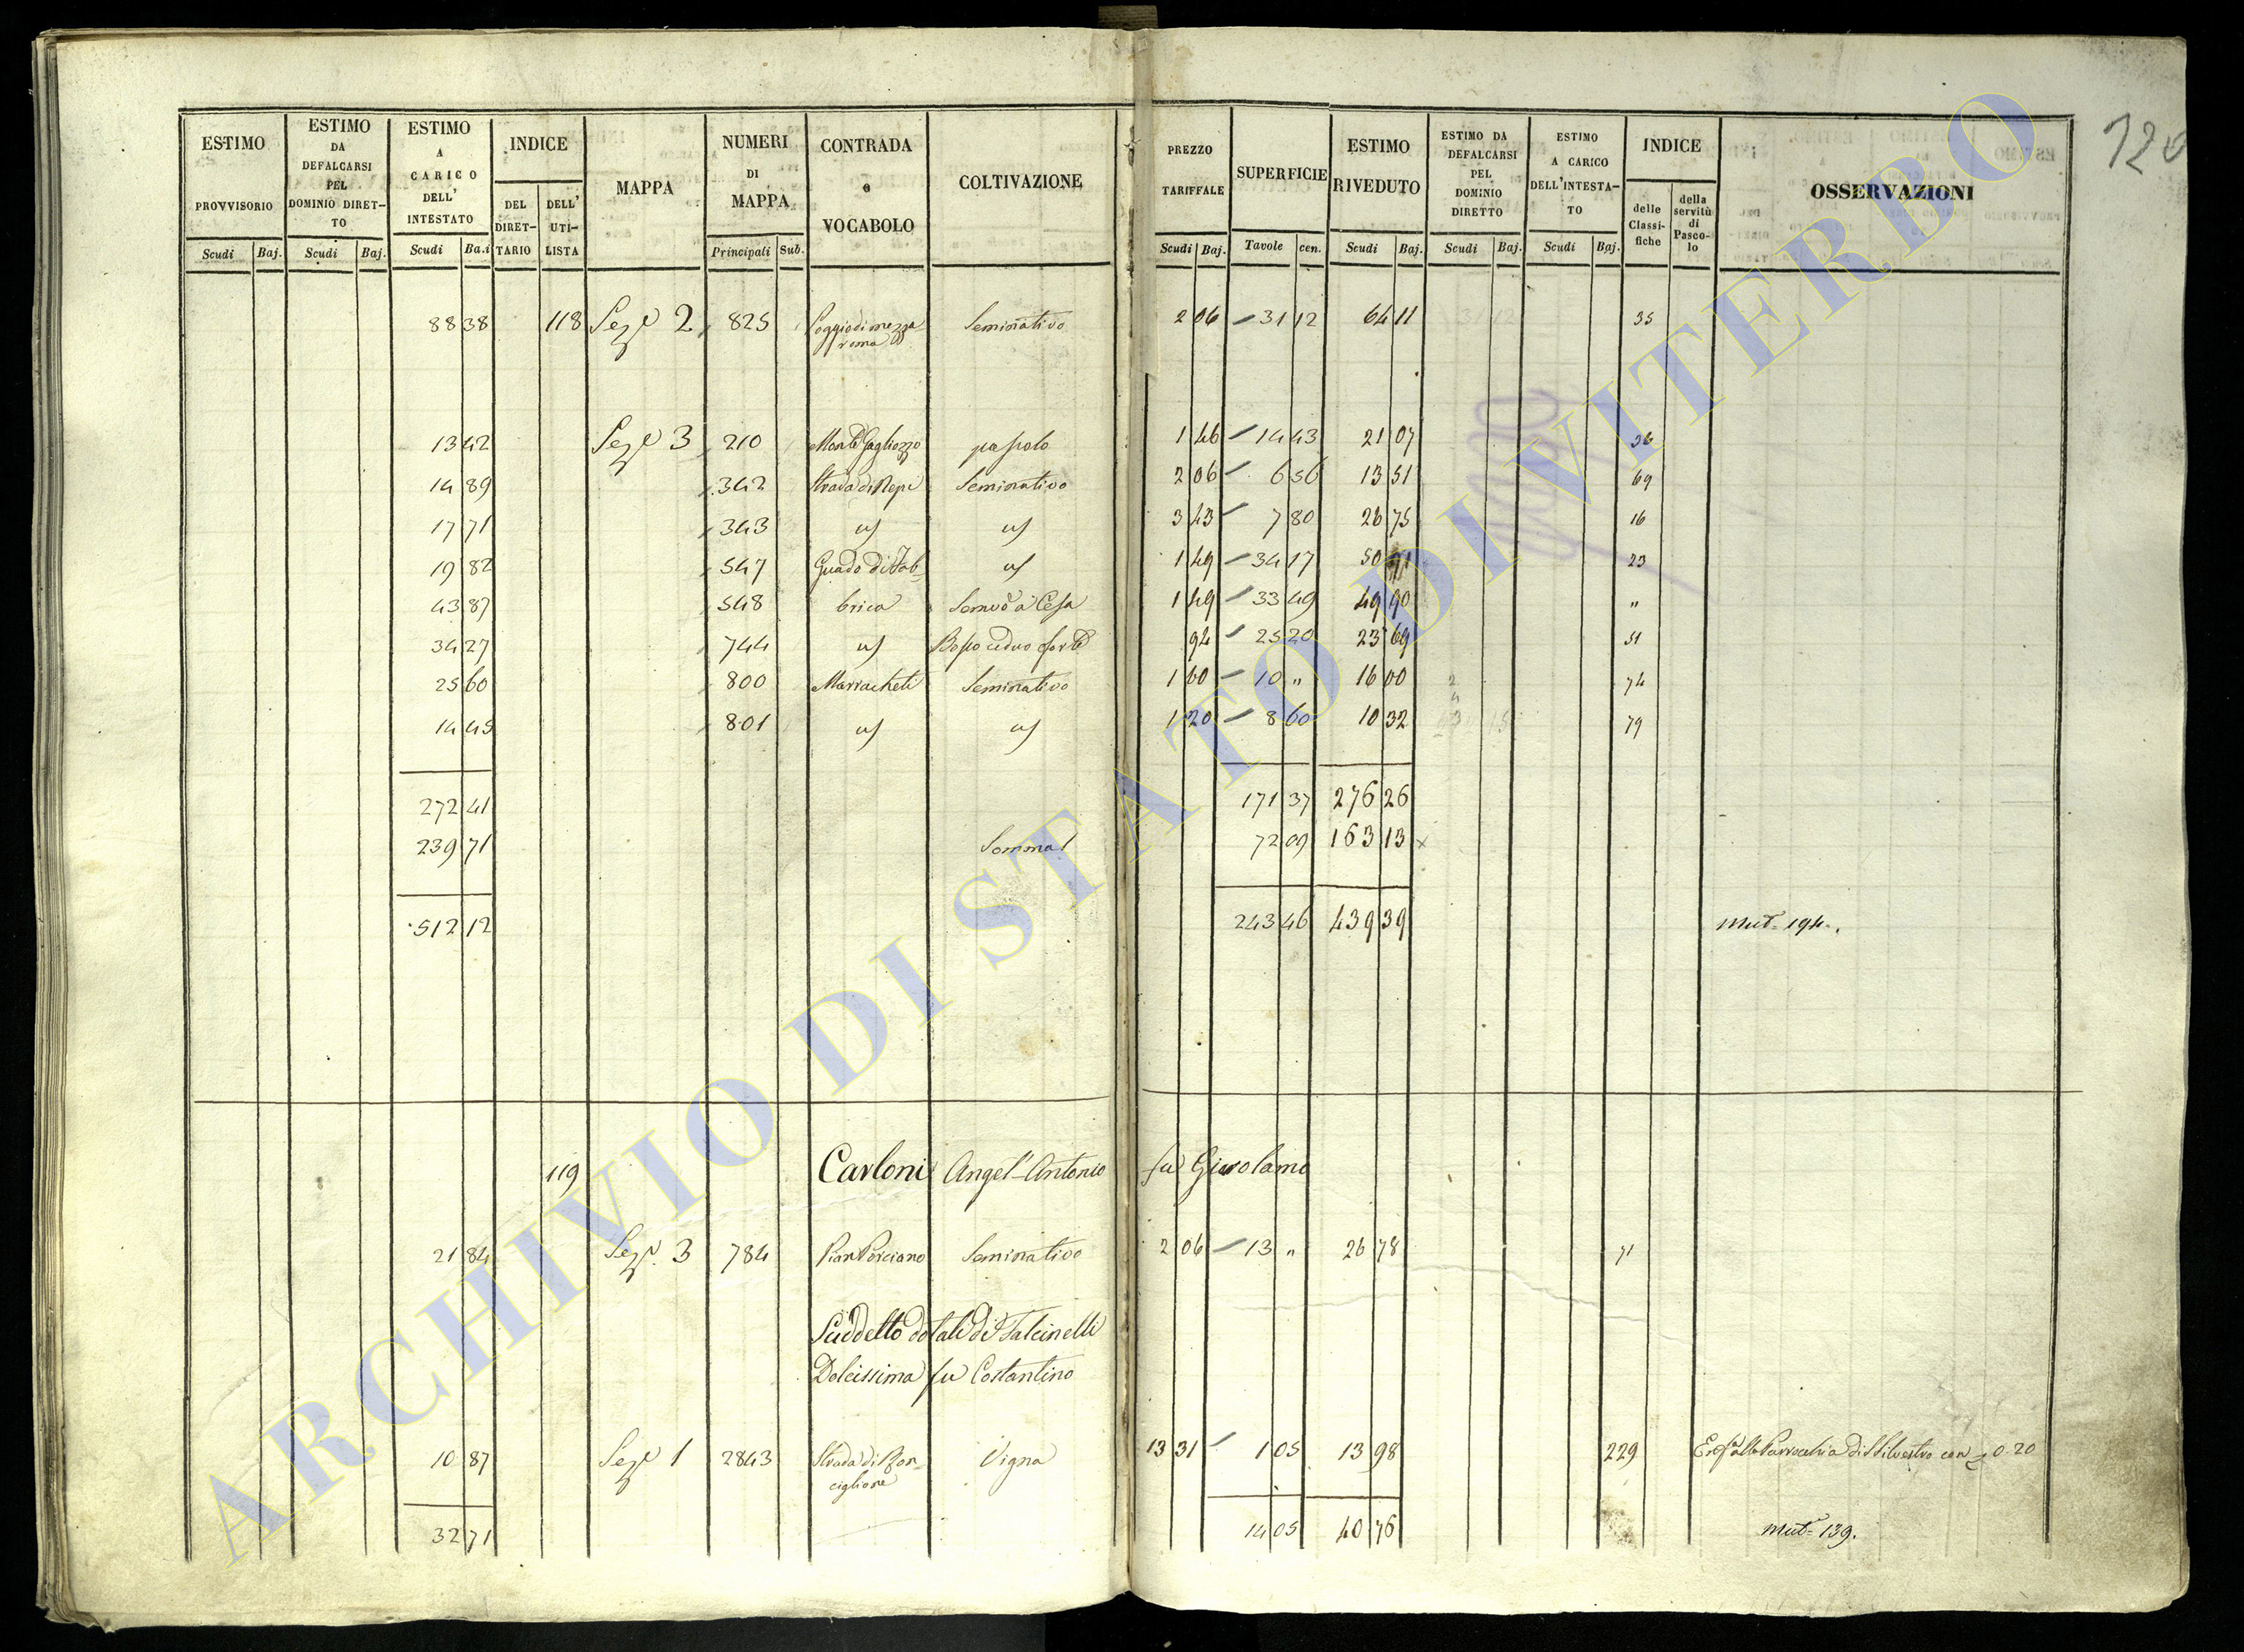 120
ESTIMO PROVVISORIO Scudi Baj.
ESTIMO DA DEFALCARSI PEL DOMINIO DIRETTO Scudi Baj.
ESTIMO A CARICO DELL' INTESTATO Scudi Ba.i
INDICE DEL DIRETTARIO DELL' UTILISTA
MAPPA
NUMERI DI MAPPA Principali Sub.
CONTRADA o VOCABOLO
COLTIVAZIONE
PREZZO TARIFFALE Scudi Baj.
SUPERFICIE Tavole cen.
ESTIMO RIVEDUTO Scudi Baj.
ESTIMO DA DEFALCARSI PEL DOMINIO DIRETTO Scudi Baj.
ESTIMO A CARICO DELL'INTESTATO Scudi Baj.
INDICE delle Classifiche della servitù di Pascolo
OSSERVAZIONI
88 38 118 Sezne 2 825 Poggio di mezza roma Seminativo 2 06 31 12 64 11 35
13 42 Sezne 3 210 Monte Gagliozzo pascolo 1 46 14 43 21 07 36
14 89 342 Strada di Nepi Seminativo 2 06 6 56 13 51 69
17 71 343 3 43 7 80 26 75 16
19 82 547 Guado di Fab- 1 49 34 17 50 91 23
43 87 548 brica 1 49 33 49 49 90 "
34 27 744 Bosco ceduo forte 94 25 20 23 69 51
25 60 800 Marracheti Seminativo 1 60 10 " 16 00 74
14 45 801 1 20 8 60 10 32 79
272 41 171 37 276 26
239 71 Somma 72 09 163 13 x
512 12 243 46 439 39 Mut. 194.
119 Carloni Angel'Antonio fu Girolamo
21 84 Sezne 3 784 Pian Porciano Seminativo 2 06 13 " 26 78 71
Suddetto dotale di Falcinelli
Dolcissima fu Costantino
10 87 Sezne 1 2843 Strada di Ron- Vigna 13 31 1 05 13 98 229 0.20
ciglione
32 71 14 05 40 76 Mut. 139.
ARCHIVIO DI STATO DI VITERBO